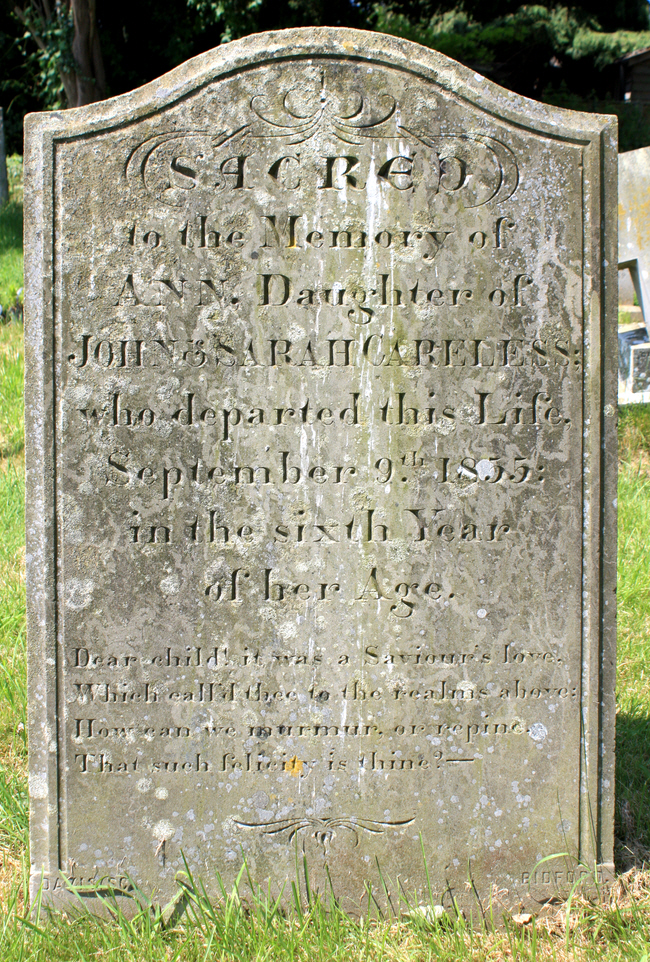 SACRED
to the Memory of
ANN, Daughter of
JOHN & SARAH CARELESS;
who departed this Life,
September 9.th 1855:
in the sixth Year
of her Age.
Dear child! it was a Saviour's love,
Which call'd thee to the realms above:
How can we murmur, or repine,
That such felicity is thine?—
BIDFORD.